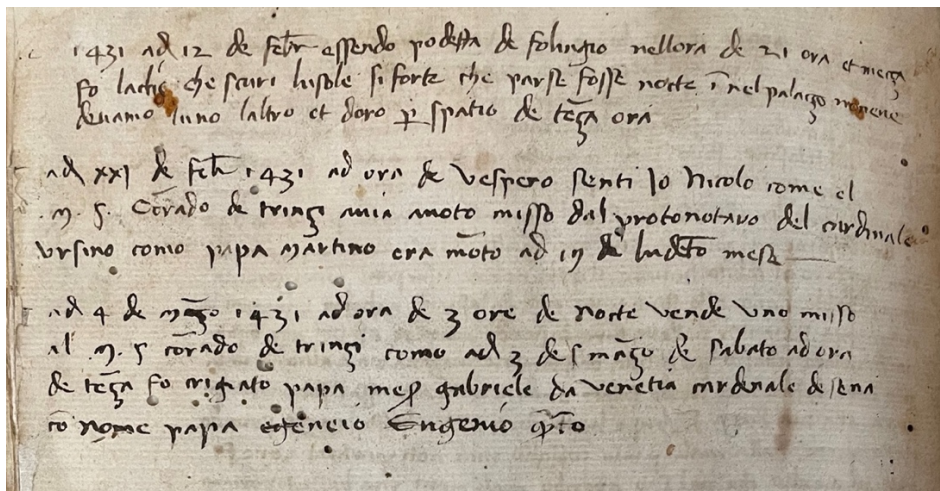 1431 ad 12 de febr essendo podesta de folingio nellora de 21 ora et meça
fo che scuri lusole si forte che parse fosse nocte ī nel palaço
luno laltro et doro p spatio de teça ora
ad xxj de feb 1431 ad ora de vespero senti Jo Nicolo come el
.M. S. Corado de trinçi avia auoto misso dal protonotaro del cardinale
ursino como papa Martino era moto ad 19 de ludeto mese
ad 4 de março 1431 ad ora de 3 ore de nocte vende uno misso
al .M. S corado de trinçi como ad 3 de março de sabato ad ora
de teça fo criato papa mes gabriele da venetia cardinale desena
cō nome papa Eugenio qrto